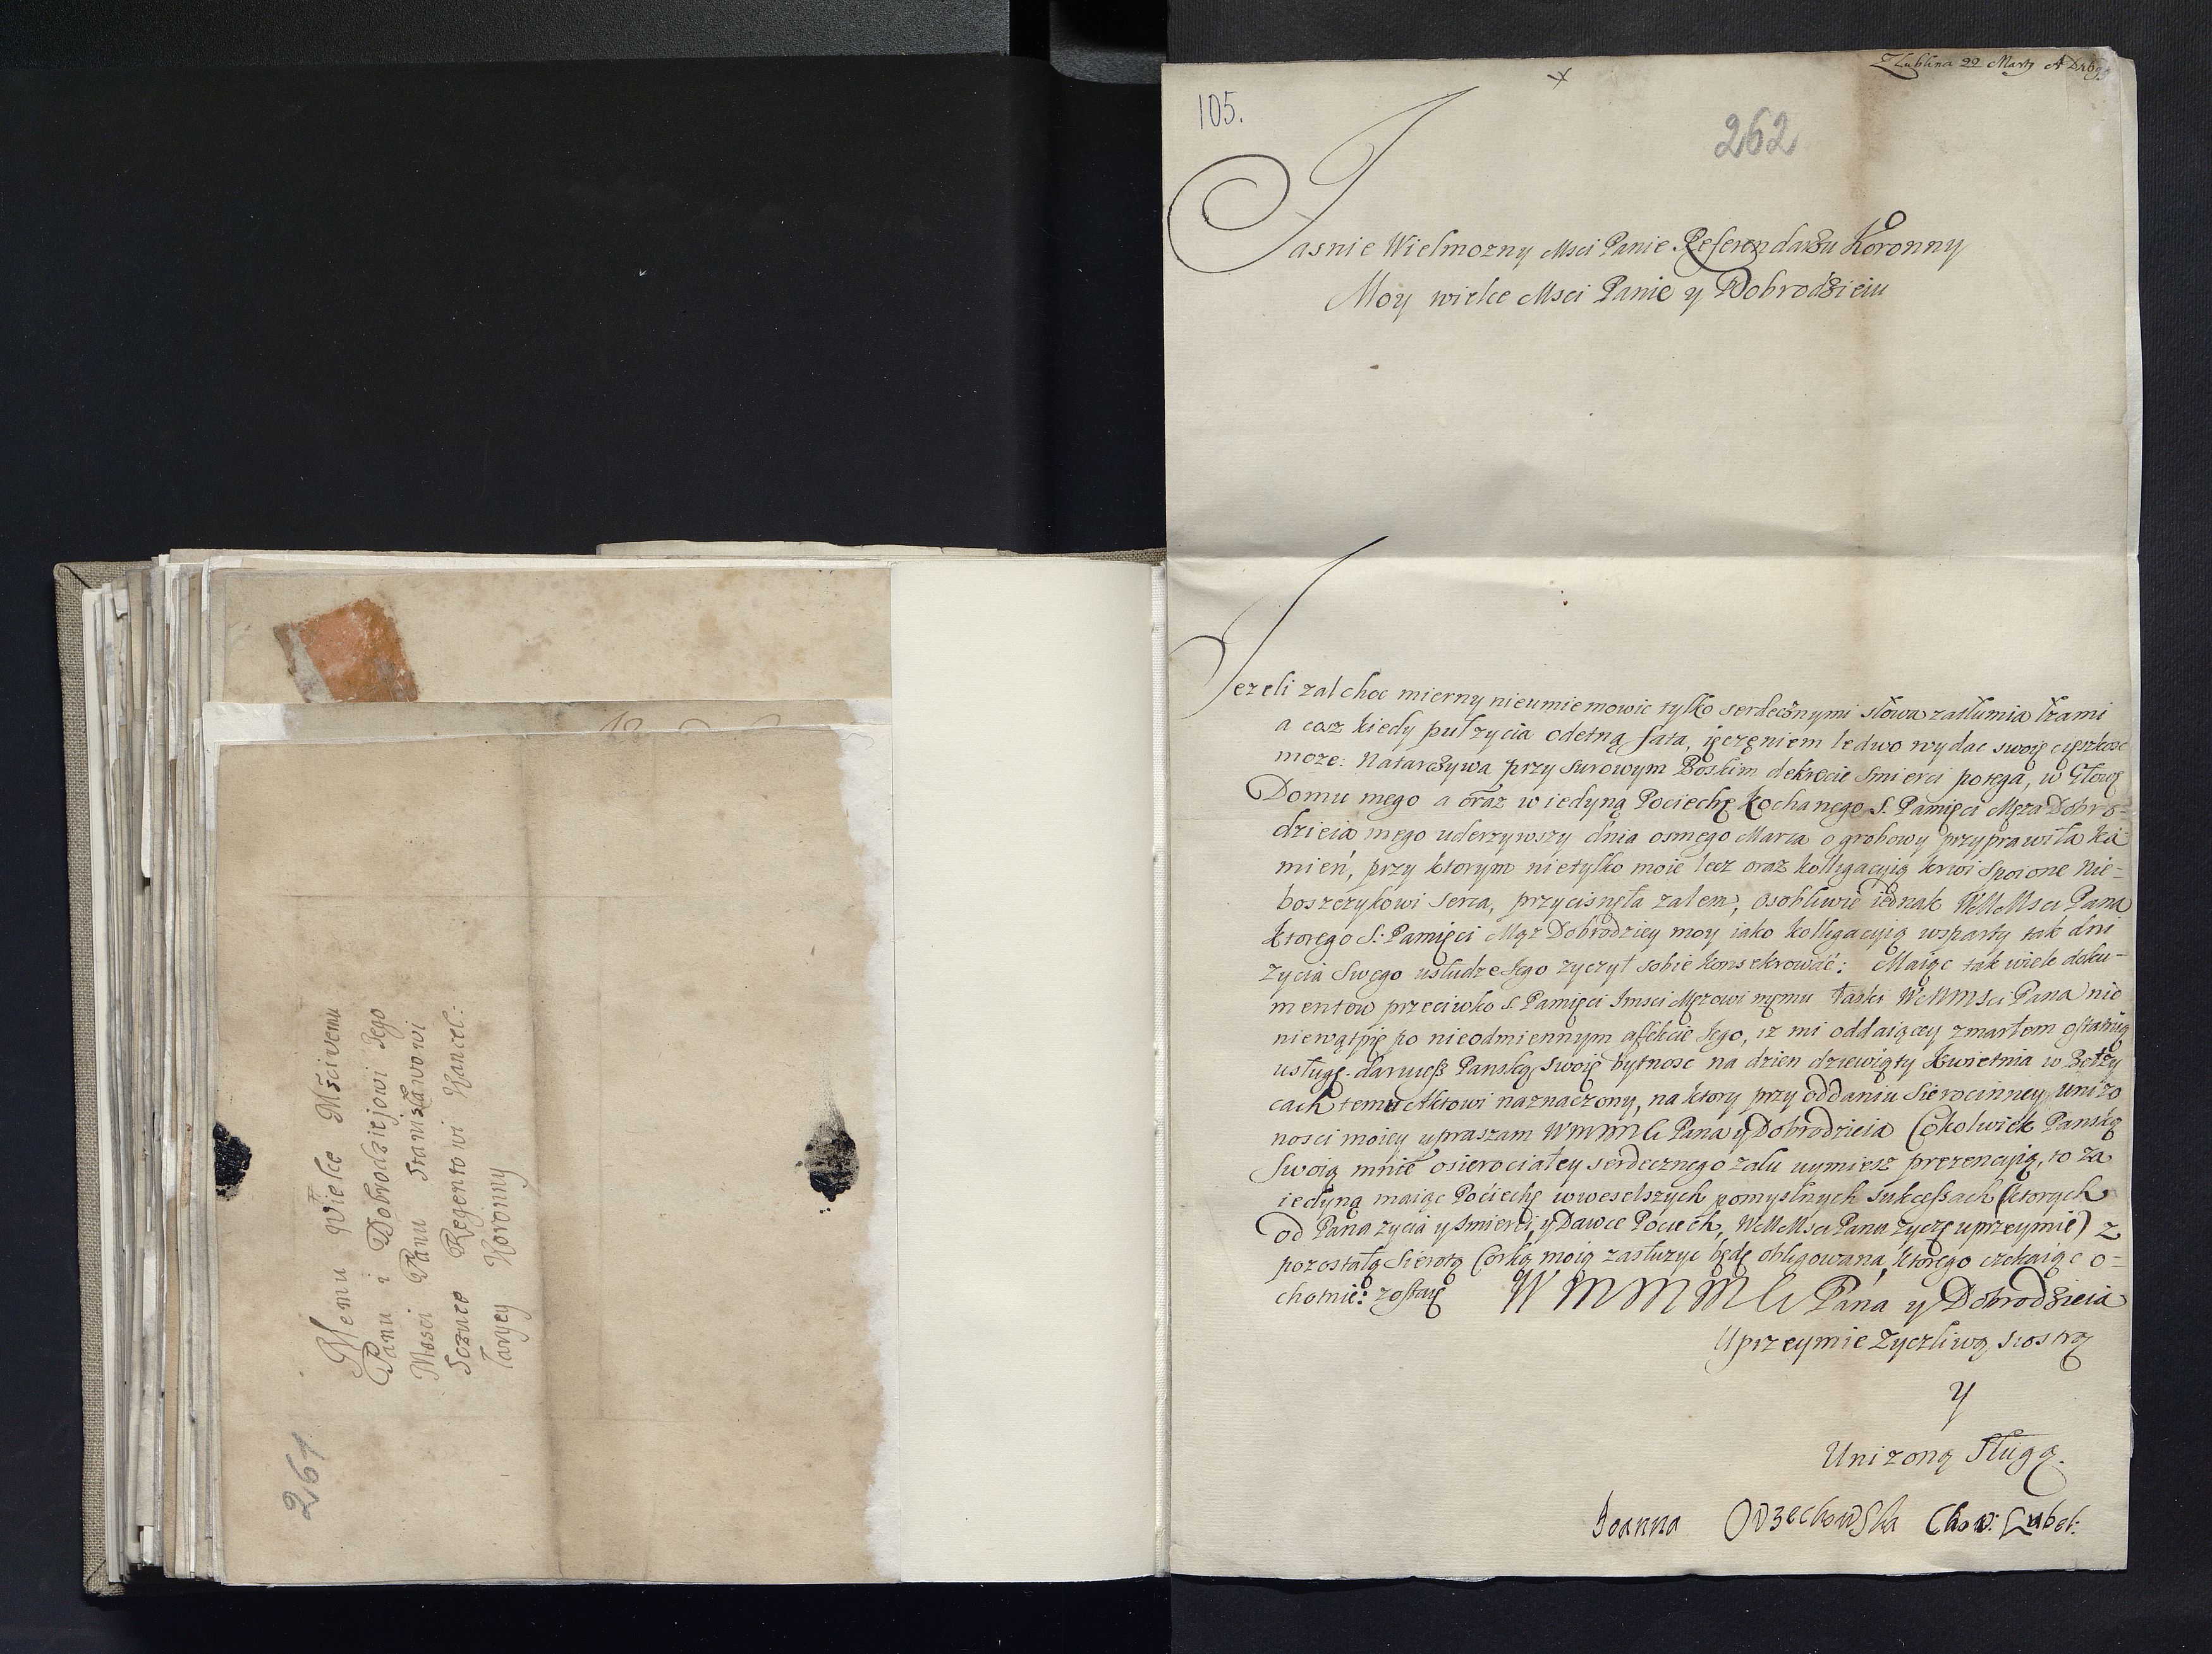 261
Memu Wielce Mściwemu
Panu i Dobrodziejowi Jego
Mosci Panu Stanisławowi
Regentowi Kancel:
laryey Koronny
Z Lublina 22 Marty A D
105.
262
Jasnie Wielmozny Msci Panie Referendarzu Koronny
Moy wielce Msci Panie y Dobrodzieiu
Jezeli zal choc mierny nieumie mowic tylko serdecznymi słowa zatłumia łzami
a cosz kiedy puł zycia odetną fata, ięczęniem ledwo wydac swoię cięszkosc
moze. Natarczywa przy surowym Boskim dekrecie smierci potęga, w Głowę
Domu mego a oraz w iedyną Pociechę kochanego S. Pamięci Męza Dobro-
dzieia mego uderzywszy dnia osmego Marca o grobowy przyprawiła ka-
mień, przy ktorym nietylko moie lecz oraz kolligacyią krwi spoione Nie-
boszczykowi serca, przycisnęła zalem, osobliwie iednak WMMsci Pana
ktorego S. Pamięci Mąz Dobrodziey moy iako kolligacyią wsparty tak dni
zycia Swego usłudze Jego zyczył sobie konsekrować: Maiąc tak wiele doku-
mentow przeciwko S. Pamięci Jmsci Męzowi memu łaski WMMsci Pana nie
niewątpię po nieodmiennym afekcie Jego, iz mi oddaiącey zmarłem ostatnią
usługę. daruiesz Panską swoię bytnosc na dzien dziewiąty Kwietnia w Bełzy
cach temu Aktowi naznaczony, na ktory przy oddaniu Sierocinney unizo
nosci moiey upraszam WMMMći Pana y Dobrodzieia Cokolwiek Panską
Swoią mnie osierociałey serdecznego zalu uymiesz prezencyią, to za
iedyną maiąc Pociechę w weselszych pomyslnych sukcessach (ktorych
od Pana zycia y smierci, y Dawce Pociech, WMMsci Panu zyczę uprzeymie) z
pozostałą Sierotą Corką moią zasłuzyc będę obligowana, ktorego czekaiąc o-
chotnie: zostaię WMMMMći Pana y Dobrodzieia
Uprzeymie Zyczliwą siostrą
y
Unizoną Sługą.
Joanna Orzechowska Chor: Lubel: